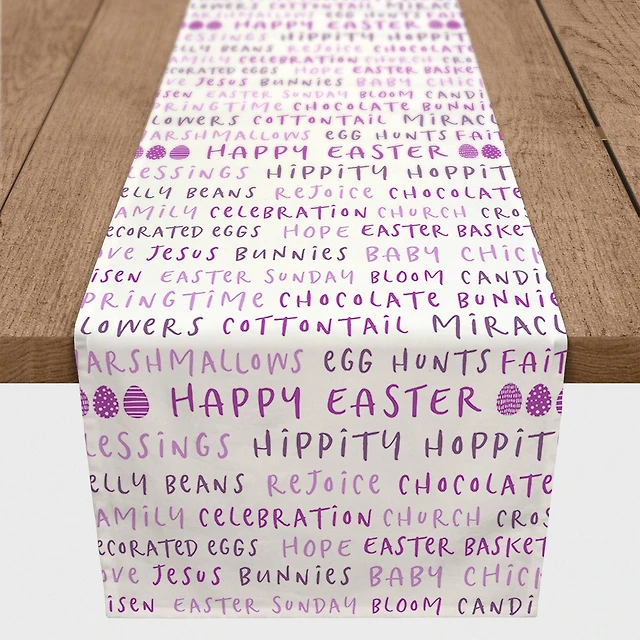 OWERS COTTONTAIL MIRACL
MARSHMALLOWS EGG HUNTS FAIT
HAPPY EASTER
LESSINGS HIPPITY HOPPIT
ELLY BEANS REJOICE CHOCOLATE
FAMILY CELEBRATION CHURCH CRO
DECORATED EGGS HOPE EASTER BASKET
OVE JESUS BUNNIES BABY CHIC
ISEN EASTER SUNDAY BLOOM CANDI
PRINGTIME CHOCOLATE BUNNI
LOWERS COTTONTAIL MIRACL
MARSHMALLOWS EGG HUNTS FAIT
HAPPY EASTER
LESSINGS HIPPITY HOPPIT
ELLY BEANS REJOICE CHOCOLATE
FAMILY CELEBRATION CHURCH CROS
ECORATED EGGS HOPE EASTER BASKET
OVE JESUS BUNNIES BABY CHICK
ISEN EASTER SUNDAY BLOOM CANDI
PRINGTIME CHOCOLATE BUNNIE
LOWERS COTTONTAIL MIRACL
MARSHMALLOWS EGG HUNTS FAIT
HAPPY EASTER
LESSINGS HIPPITY HOPPIT
ELLY BEANS REJOICE CHOCOLATE
AMILY CELEBRATION CHURCH CROS
ECORATED EGGS HOPE EASTER BASKET
OVE JESUS BUNNIES BABY CHICK
ISEN EASTER SUNDAY BLOOM CANDI